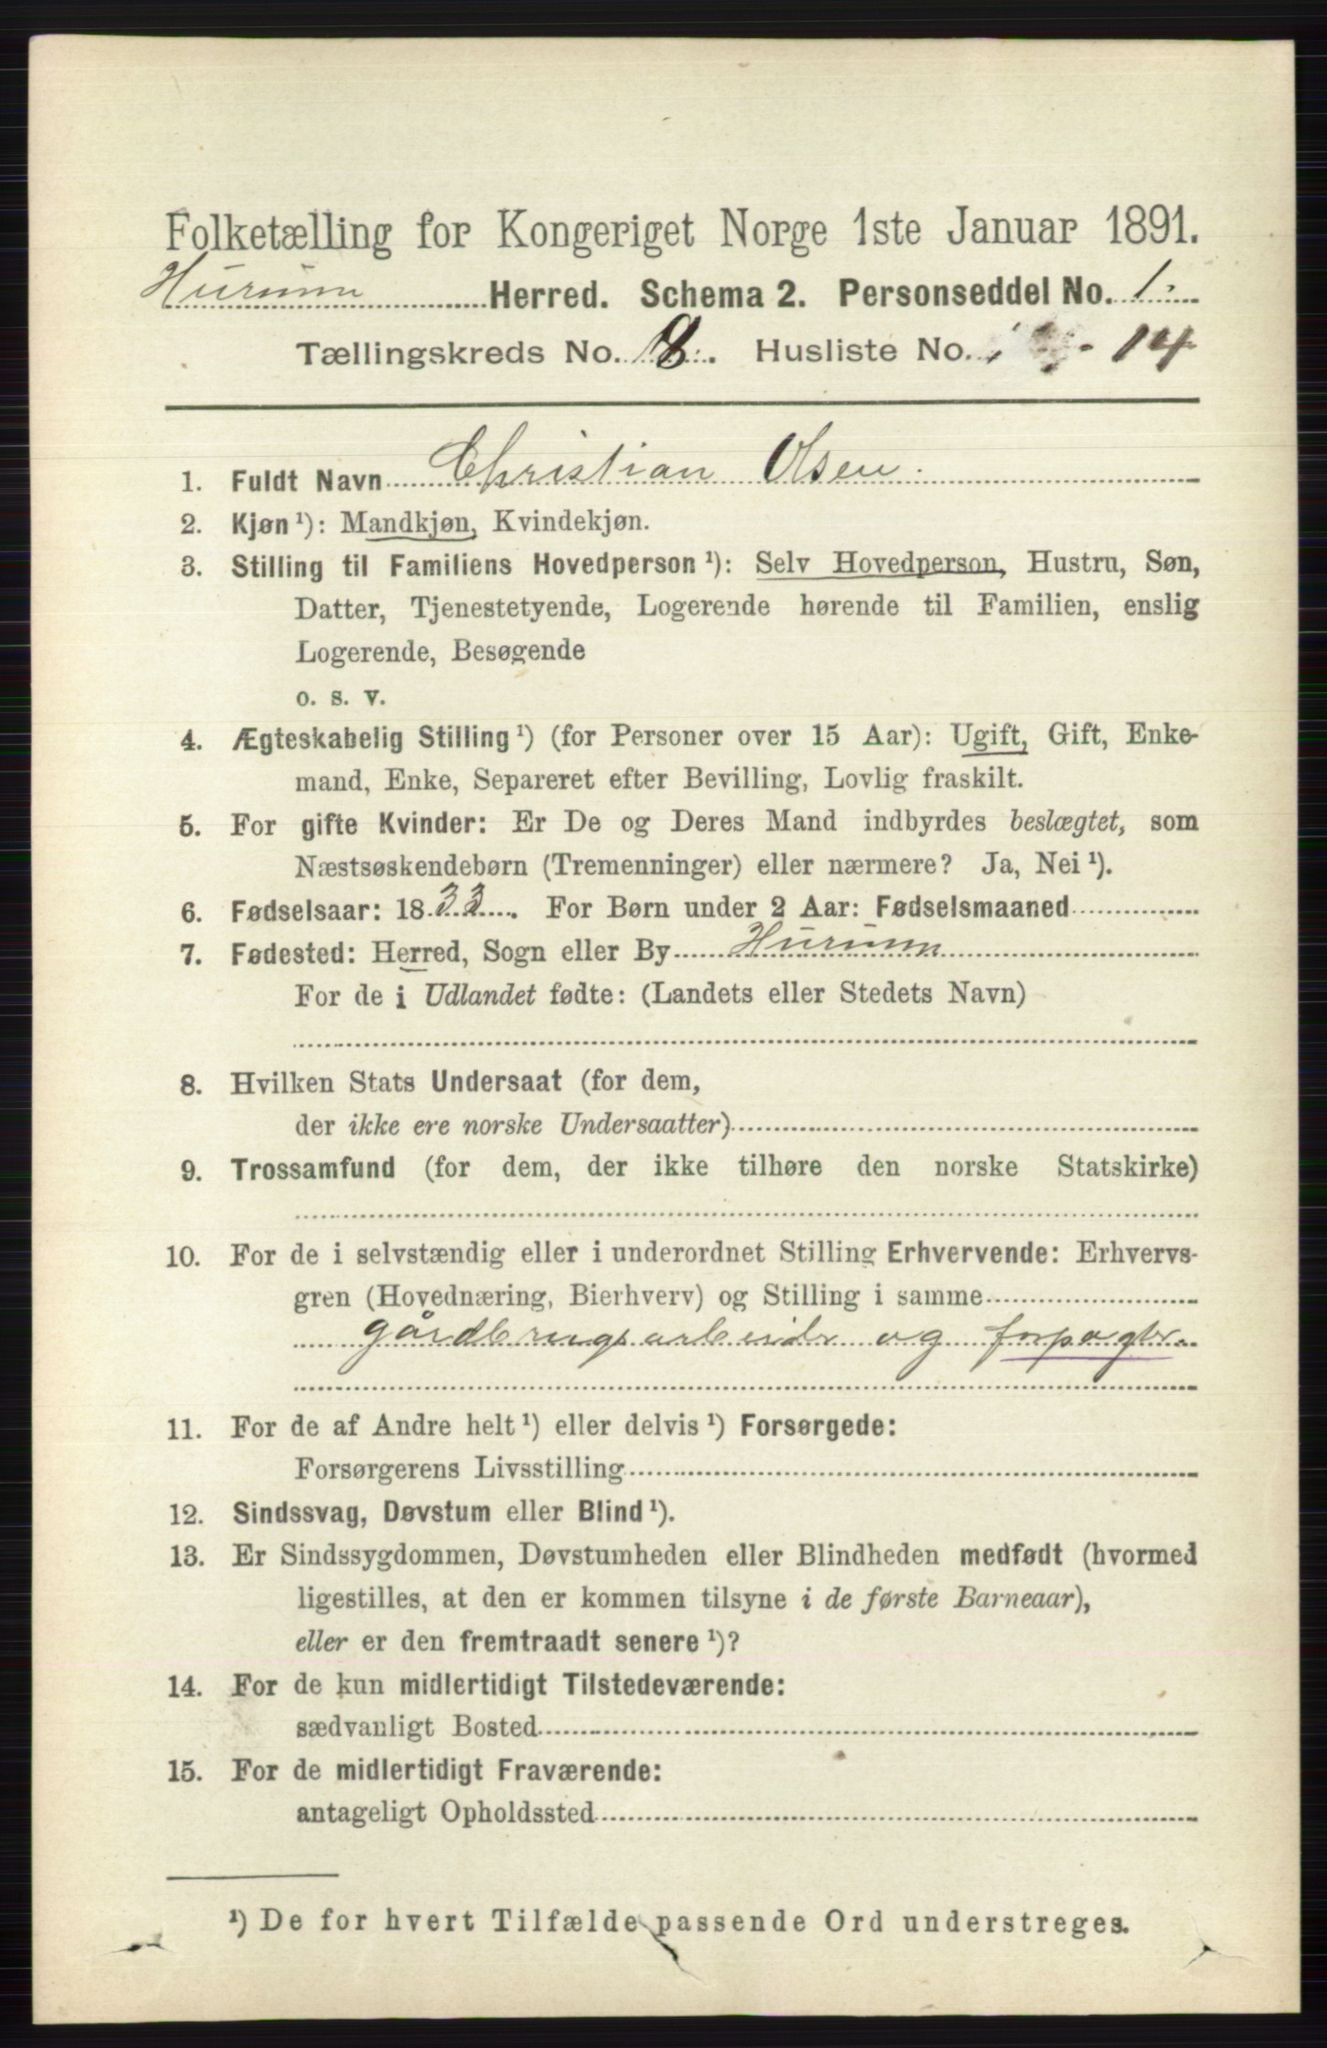 Folketælling for Kongeriget Norge 1ste Januar 1891.
Hurum Herred. Schema 2. Personseddel No. 1.
Tællingskreds No. 8. Husliste No. 14
1. Fuldt Navn Christian Olsen.
2. Kjøn ¹): Mandkjøn, Kvindekjøn.
3. Stilling til Familiens Hovedperson ¹): Selv Hovedperson, Hustru, Søn,
Datter, Tjenestetyende, Logerende hørende til Familien, enslig
Logerende, Besøgende
o. s. v.
4. Ægteskabelig Stilling ¹) (for Personer over 15 Aar): Ugift, Gift, Enke-
mand, Enke, Separeret efter Bevilling, Lovlig fraskilt.
5. For gifte Kvinder: Er De og Deres Mand indbyrdes beslægtet, som
Næstsøskendebørn (Tremenninger) eller nærmere? Ja, Nei ¹).
6. Fødselsaar: 1833. For Børn under 2 Aar: Fødselsmaaned
7. Fødested: Herred, Sogn eller By Hurum
For de i Udlandet fødte: (Landets eller Stedets Navn)
8. Hvilken Stats Undersaat (for dem,
der ikke ere norske Undersaatter)
9. Trossamfund (for dem, der ikke tilhøre den norske Statskirke)
10. For de i selvstændig eller i underordnet Stilling Erhvervende: Erhvervs-
gren (Hovednæring, Bierhverv) og Stilling i samme
gårdbrugsarbeider og forpagter.
11. For de af Andre helt ¹) eller delvis ¹) Forsørgede:
Forsørgerens Livsstilling
12. Sindssvag, Døvstum eller Blind ¹).
13. Er Sindssygdommen, Døvstumheden eller Blindheden medfødt (hvormed
ligestilles, at den er kommen tilsyne i de første Barneaar),
eller er den fremtraadt senere ¹)?
14. For de kun midlertidigt Tilstedeværende:
sædvanligt Bosted
15. For de midlertidigt Fraværende:
antageligt Opholdssted
¹) De for hvert Tilfælde passende Ord understreges.